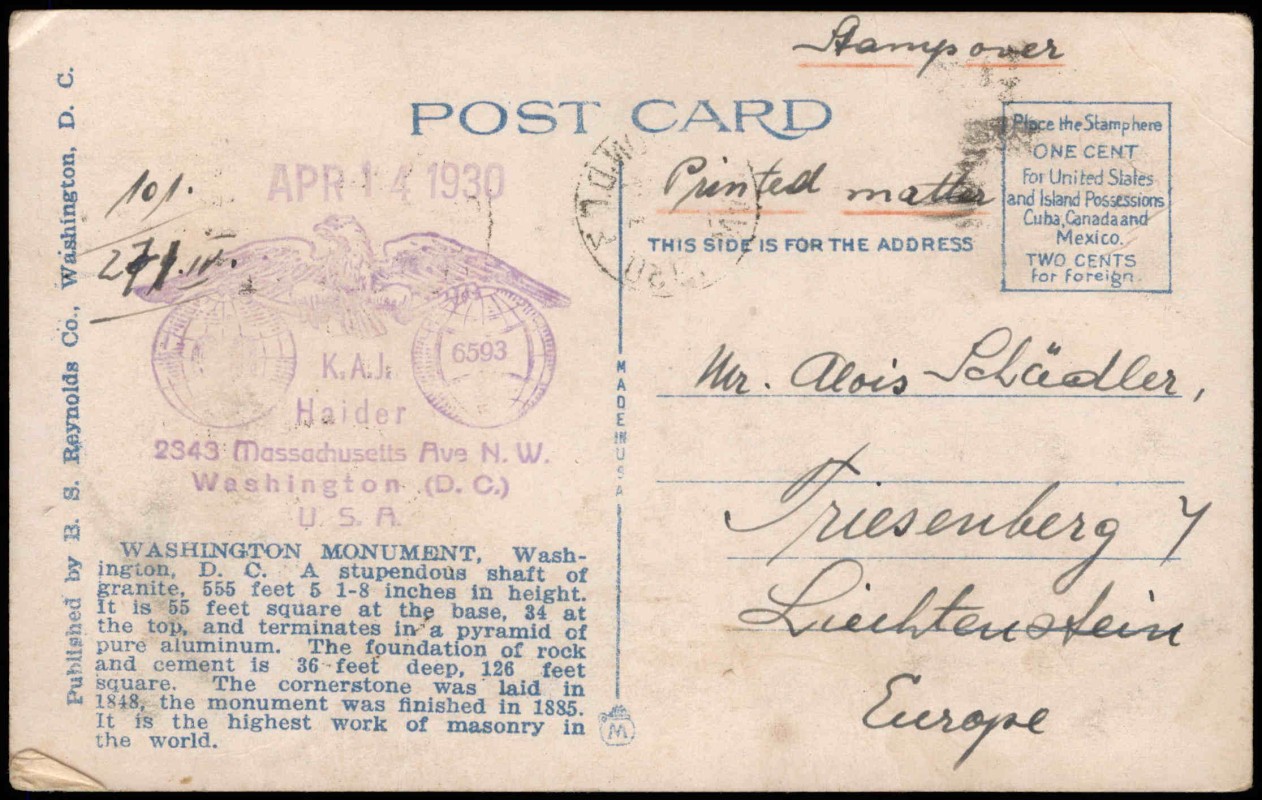 Stamp over
POST CARD
Printed matter
THIS SIDE IS FOR THE ADDRESS
Place the Stamp here
ONE CENT
For United States
and Island Possessions
Cuba, Canada and
Mexico.
TWO CENTS
for foreign.
Published by B. S. Reynolds Co., Washington, D. C.
APR 14 1930
101.
6593
K.A.J.
Haider
2343 Massachusetts Ave N. W.
Washington (D. C.)
U. S. A.
WASHINGTON MONUMENT, Wash-
ington, D. C. A stupendous shaft of
granite, 555 feet 5 1-8 inches in height.
It is 55 feet square at the base, 34 at
the top, and terminates in a pyramid of
pure aluminum. The foundation of rock
and cement is 36 feet deep, 126 feet
square. The cornerstone was laid in
1848, the monument was finished in 1885.
It is the highest work of masonry in
the world.
MADE IN USA
M
Mr. Alois Schädler,
Triesenberg 7
Liechtenstein
Europe